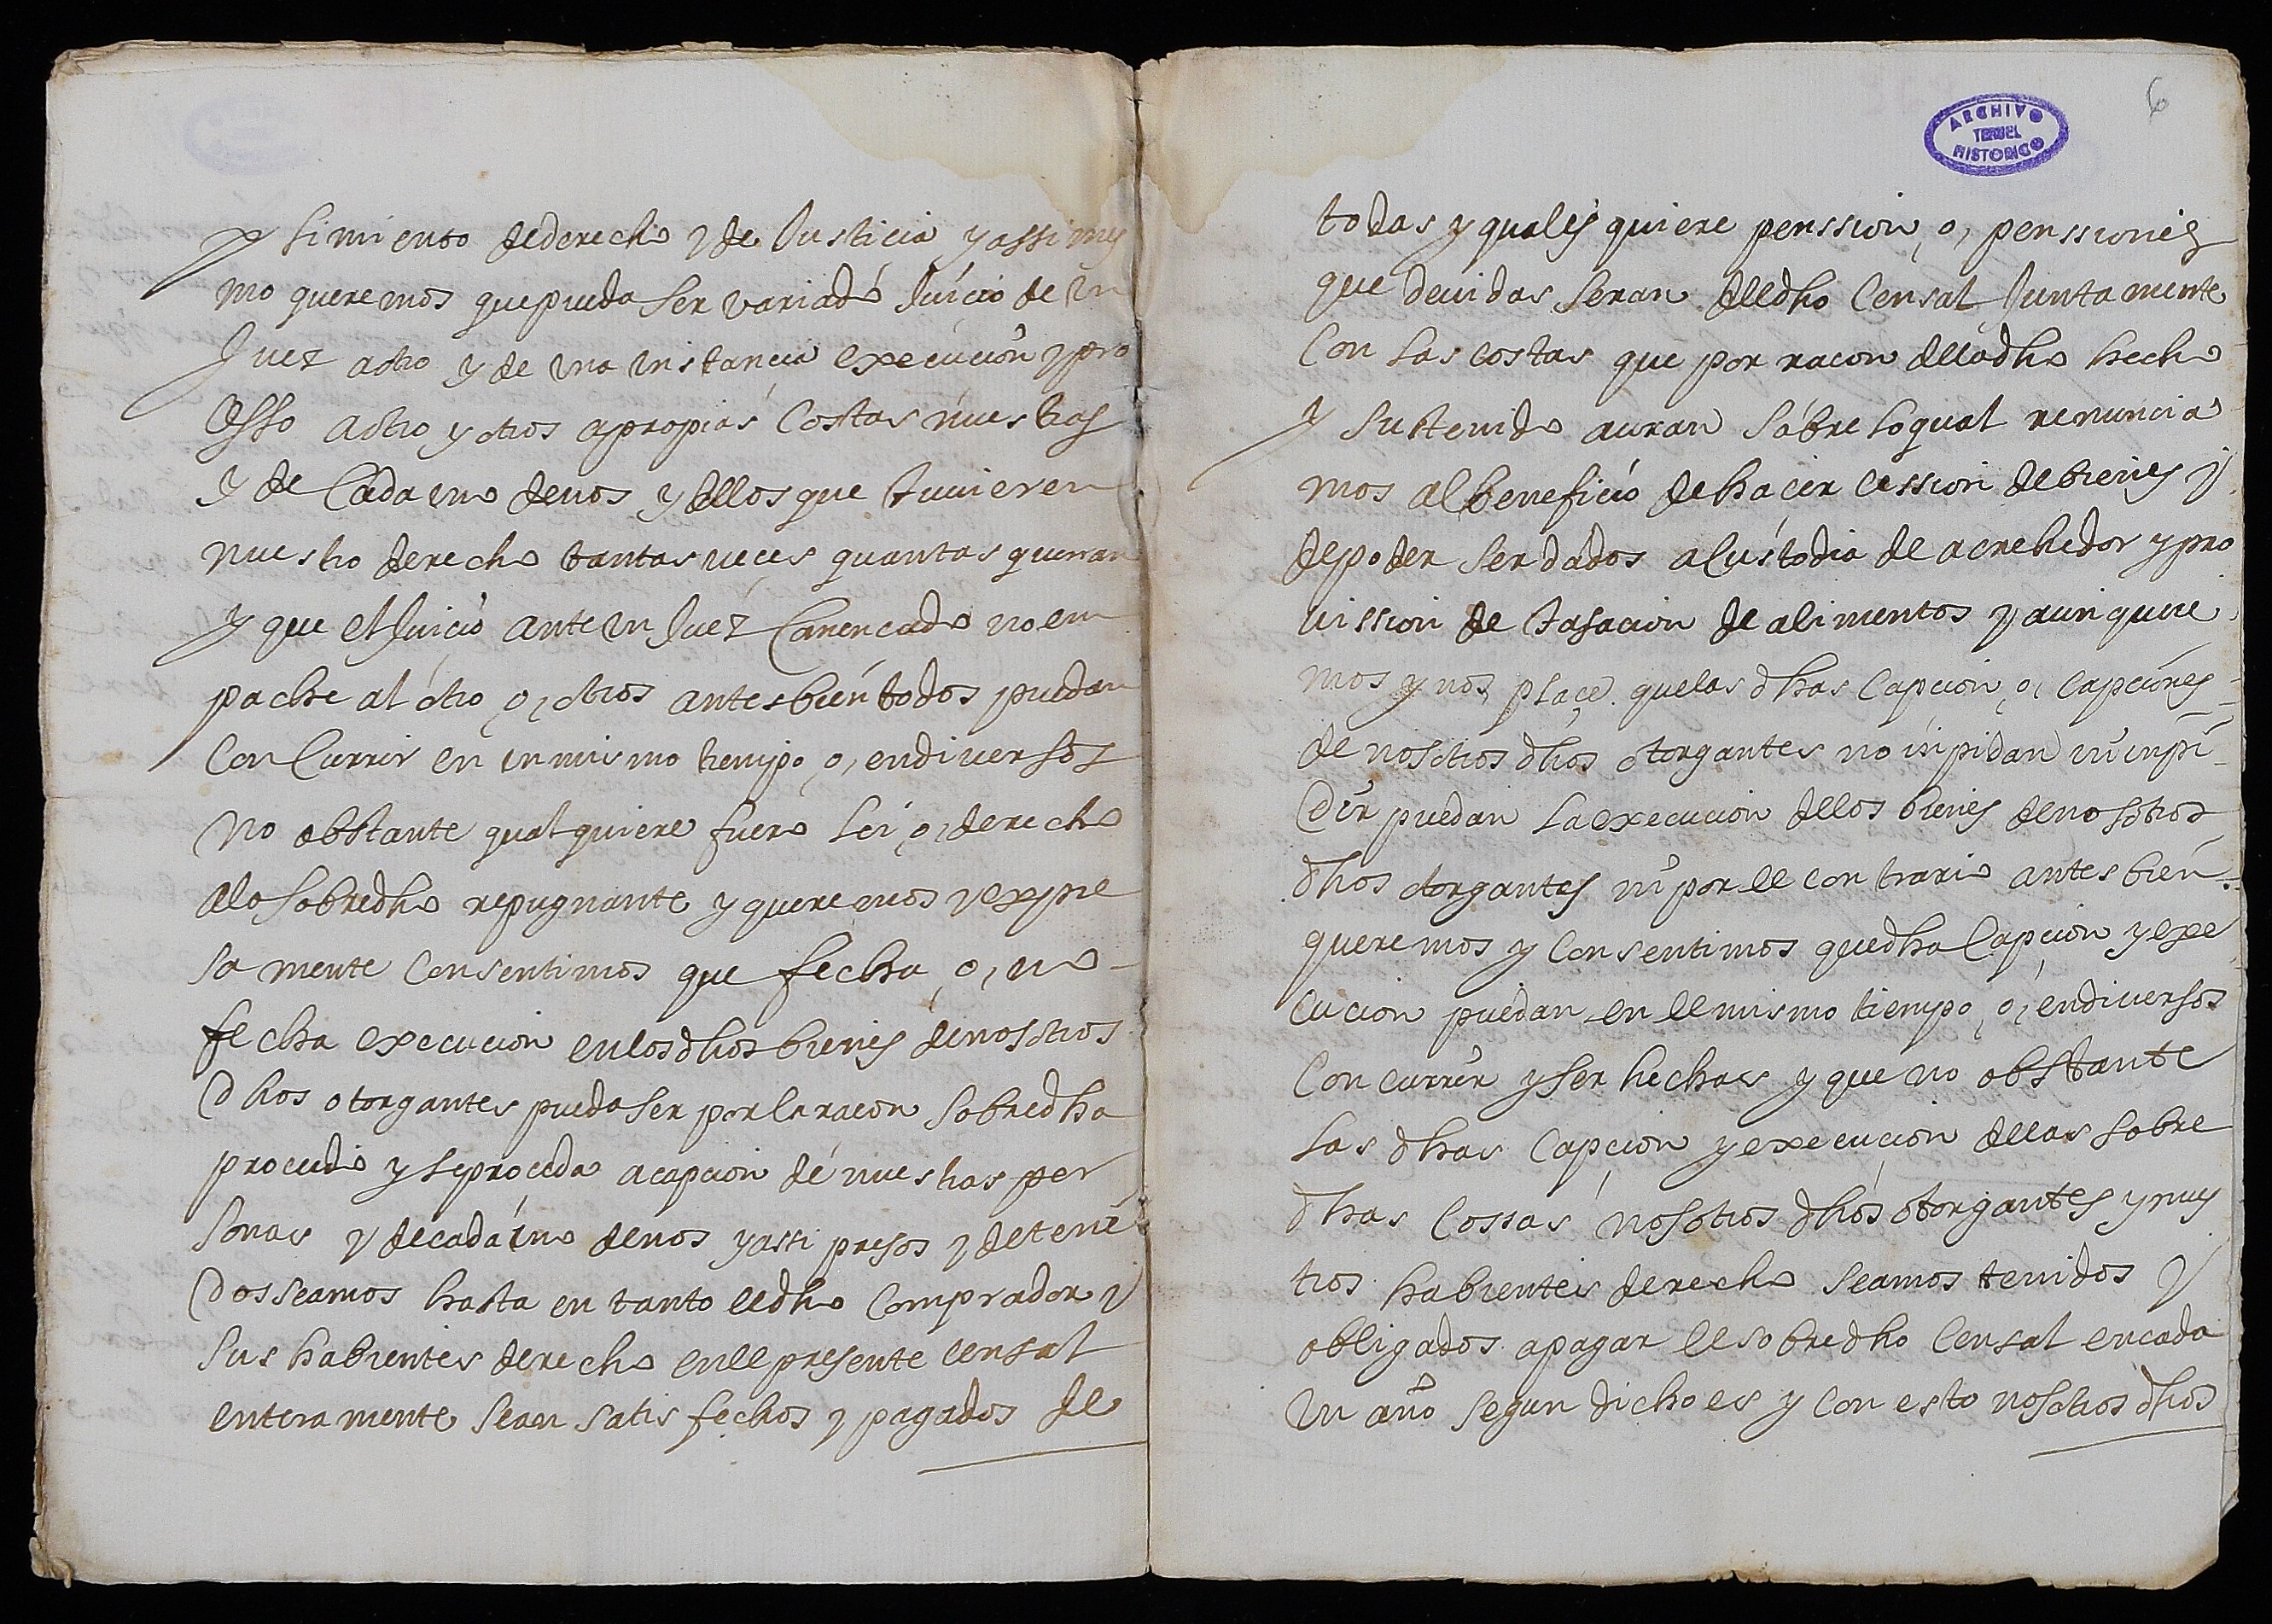 plimiento dederecho y de Justicia y assimis
mo queremos quepueda ser variado Juicio de vn
Juez aotro y de vna instancia execucion y pro
cesso aotro y otros apropias Costas nuestras
y de Cada vno denos y dellos que tuuieren
nuestro derecho tantas veces quantas querran
y que el Juicio ante vn Juez Comencado no em
pache al otro, o, otros antes bien todos puedan
Concurrir en vn mismo tiempo, o, endiuersos
no obstante qualquiere fuero lei, o, derecho
alo sobredho repugnante y queremos y expre
samente consentimos que fecha, o, no
fecha execucion enlosdhos bienes denosotros
dhos otorgantes pueda ser por la racon sobredha
procedido y seproceda acapcion de nuestras per
sonas y decada vno denos y assi presos y deteni
dos seamos hasta en tanto eldho Comprador y
sus habientes derecho enel presente censal
enteramente sean satisfechos y pagados de
6
ARCHIVO
TERUEL
HISTORICO
todas y quales quiere penssion, o, penssiones
que deuidas seran deldho Censal Juntamente
Con las costas que por racon delladho hecho
y sustenido auran sobre loqual renuncia
mos al beneficio de hacer cession debienes y
depoder ser dados acustodia de acrehedor y pro
uission de tasacion de alimentos y aun quere
mos y nos place quelas dhas Capcion, o, capciones
de nosotros dhos otorgantes no inpidan ni inpi
dir puedan la execucion dellos bienes denosotros
dhos otorgantes ni por el contrario antes bien
queremos y consentimos quedha Capcion y exe
cucion puedan en el mismo tiempo, o, endiuersos
Concurrir y ser hechas y que no obstante
las dhas Capcion y execucion dellas sobre
dhas cossas nosotros dhos otorgantes y nues
tros habientes derecho seamos tenidos y
obligados apagar el sobredho Censal encada
vn año segun dicho es y con esto nosotros dhos